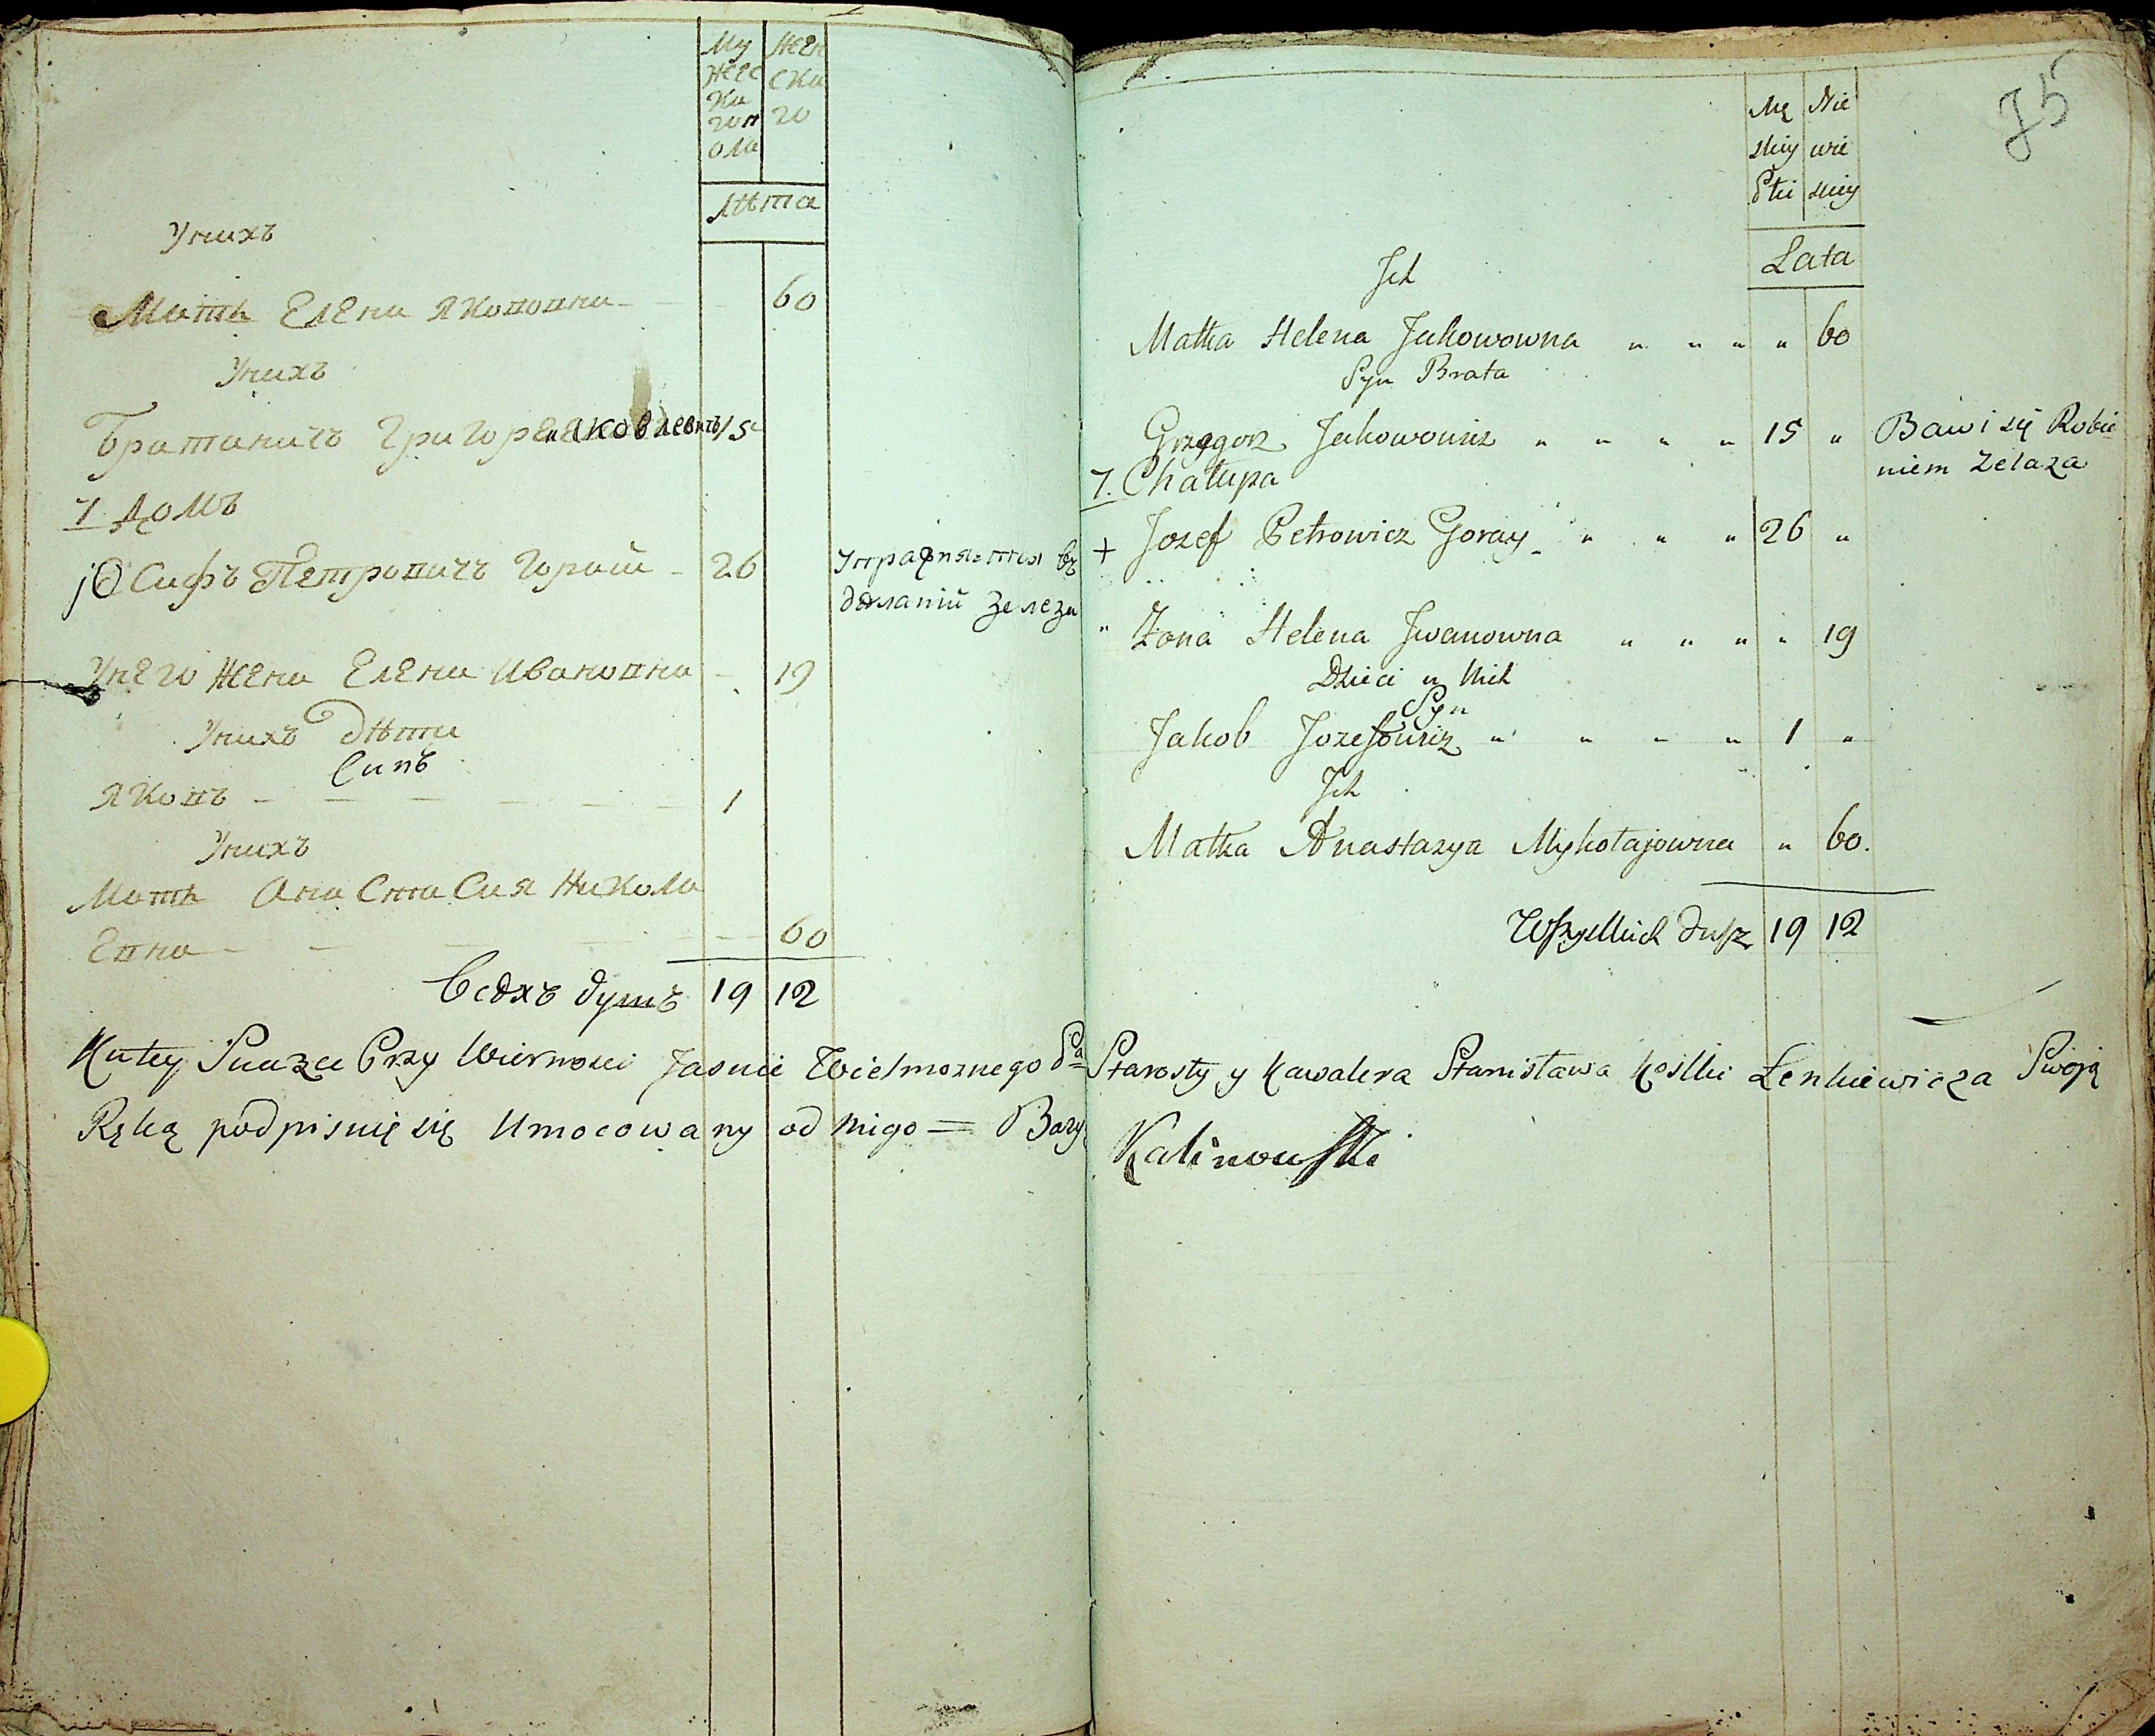 Му Жен
жес ска
ка го
гоп
ола
Лѣта
Унихъ
Мать Елена Якововна - - 60
Унихъ
Братаничъ Григорей Яковлевичъ 15
7 Домъ
Іосифъ Петровичъ Горай - 26 упражняется въ
дѣланіи Железа
Унего Жена Елена Ивановна - 19
Унихъ дѣти
Синъ
Яковъ - - - - - - 1
Унихъ
Мать Анастасия Никола
евна - - - - - 60
Всѣхъ душъ 19 12
75
Mę Nie
skiy wie
Płci skiey
Lata
Ich
Matka Helena Jakowowna " " " " 60
Syn Brata
Grzegorz Jakowowicz " " " " 15 " Bawi się Robie
niem Zelaza
7. Chałupa
+ Jozef Petrowicz Goray - " " " 26 "
" Zona Helena Jwanowna " " " " 19
Dzieci u Nich
Syn
Jakob Jozefowicz " " " " 1 "
Ich
Matka Anastazya Mykołajowna " 60.
Wszystkich dusz 19 12
Przy Wiernosci Jasnie Wielmoznego Pa Starosty y Kawalera Stanisława Kostki Łenkiewicza Swoją
Ręką podpisuię się Umocowany od Niego = Bazy
Kalinowski